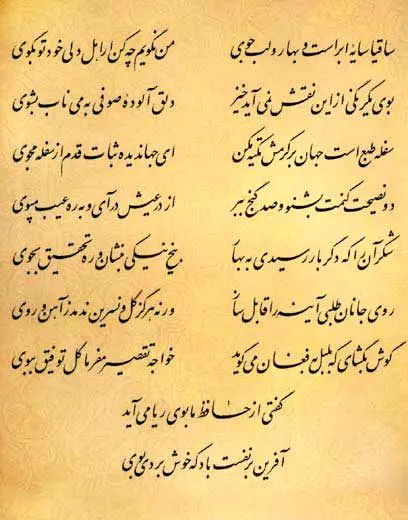 ساقیا سایهٔ ابر است و بهار و لب جوی من نگویم چه کن ار اهل دلی خود تو بگوی
بوی یکرنگی از این نقش نمی آید خیز دلق آلودهٔ صوفی به می ناب بشوی
سفله طبع است جهان بر کرمش تکیه مکن ای جهاندیده ثبات قدم از سفله مجوی
دو نصیحت کنمت بشنو و صد گنج ببر از در عیش در آی و به ره عیب مپوی
شکر آن را که دگر بار رسیدی به بهار بیخ نیکی بنشان و ره تحقیق بجوی
روی جانان طلبی آینه را قابل ساز ورنه هرگز گل و نسرین ندمد ز آهن و روی
گوش بگشای که بلبل به فغان می گوید خواجه تقصیر مفرما گل توفیق ببوی
گفتی از حافظ ما بوی ریا می آید
آفرین بر نفست باد که خوش بردی بوی